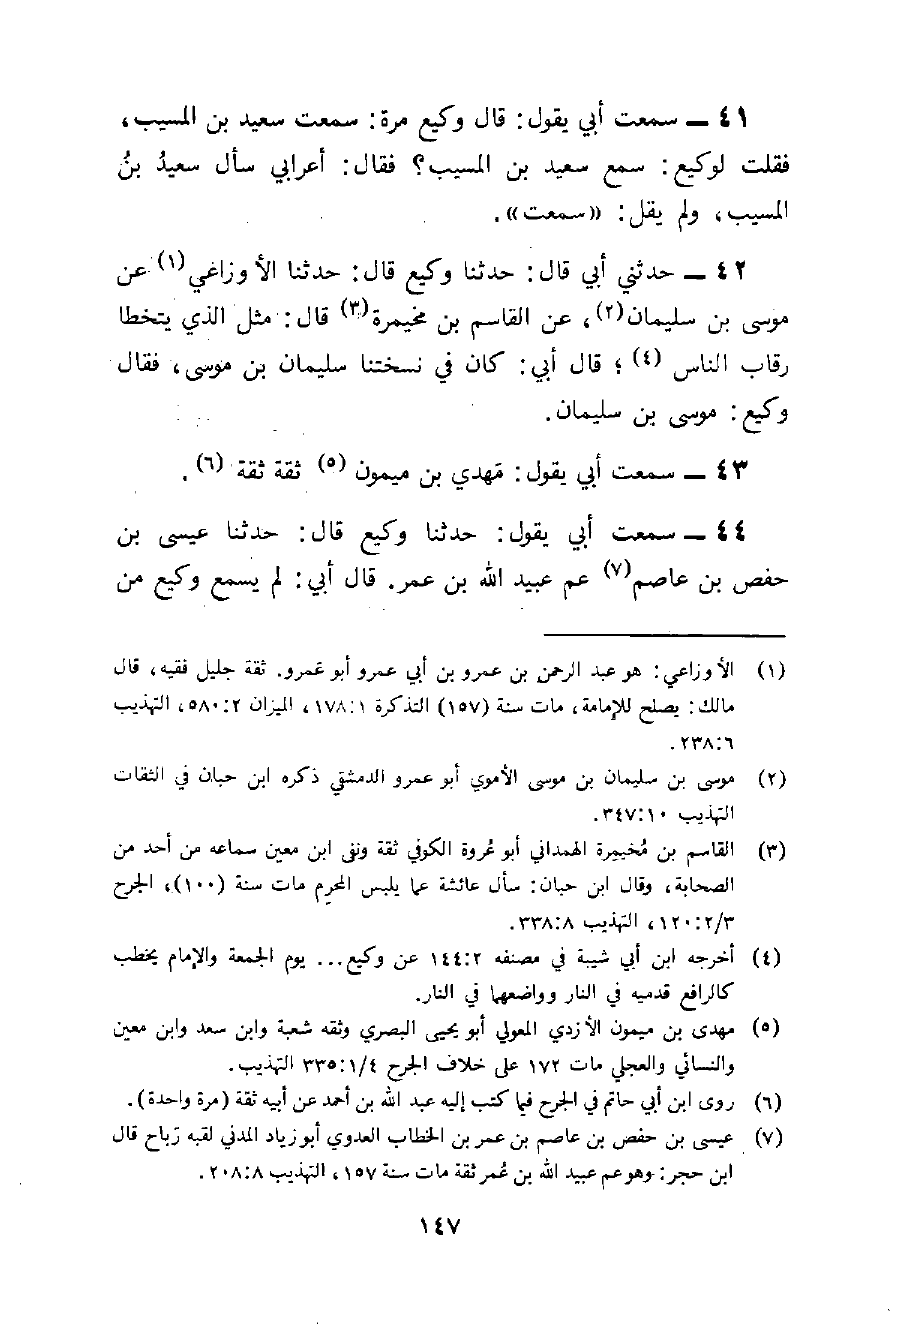 ٤١ ــ سمعت أبي يقول: قال وكيع مرة: سمعت سعيد بن المسيب،
فقلت لوكيع: سمع سعيد بن المسيب؟ فقال: أعرابي سأل سعيدُ بنُ
المسيب، ولم يقل: «سمعت».
٤٢ ــ حدثني أبي قال: حدثنا وكيع قال: حدثنا الأوزاعي(١) عن
موسى بن سليمان(٢)، عن القاسم بن مخيمرة(٣) قال: مثل الذي يتخطا
رقاب الناس (٤)؛ قال أبي: كان في نسختنا سليمان بن موسى، فقال
وكيع: موسى بن سليمان.
٤٣ ــ سمعت أبي يقول: مَهدي بن ميمون (٥) ثقة ثقة (٦).
٤٤ ــ سمعت أبي يقول: حدثنا وكيع قال: حدثنا عيسى بن
حفص بن عاصم(٧) عم عبيد الله بن عمر. قال أبي: لم يسمع وكيع من
(١) الأوزاعي: هو عبد الرحمن بن عمرو بن أبي عمرو أبو عَمرو. ثقة جليل فقيه، قال
مالك: يصلح للإمامة، مات سنة (١٥٧) التذكرة ١٧٨:١، الميزان ٥٨٠:٢، التهذيب
٢٣٨:٦.
(٢) موسى بن سليمان بن موسى الأموي أبو عمرو الدمشقي ذكره ابن حبان في الثقات
التهذيب ٣٤٧:١٠.
(٣) القاسم بن مُخيمرة الهمداني أبو عُروة الكوفي ثقة ونفى ابن معين سماعه من أحد من
الصحابة، وقال ابن حبان: سأل عائشة عما يلبس المحرم مات سنة (١٠٠)، الجرح
١٢٠:٢/٣، التهذيب ٣٣٨:٨.
(٤) أخرجه ابن أبي شيبة في مصنفه ١٤٤:٢ عن وكيع... يوم الجمعة والإمام يخطب
كالرافع قدميه في النار وواضعهما في النار.
(٥) مهدى بن ميمون الأزدي المعولي أبو يحيى البصري وثقه شعبة وابن سعد وابن معين
والنسائي والعجلي مات ١٧٢ على خلاف الجرح ٣٣٥:١/٤ التهذيب.
(٦) روى ابن أبي حاتم في الجرح فيما كتب إليه عبد الله بن أحمد عن أبيه ثقة (مرة واحدة).
(٧) عيسى بن حفص بن عاصم بن عمر بن الخطاب العدوي أبو زياد المدني لقبه رَباح قال
ابن حجر: وهو عم عبيد الله بن عُمر ثقة مات سنة ١٥٧، التهذيب ٢٠٨:٨.
١٤٧